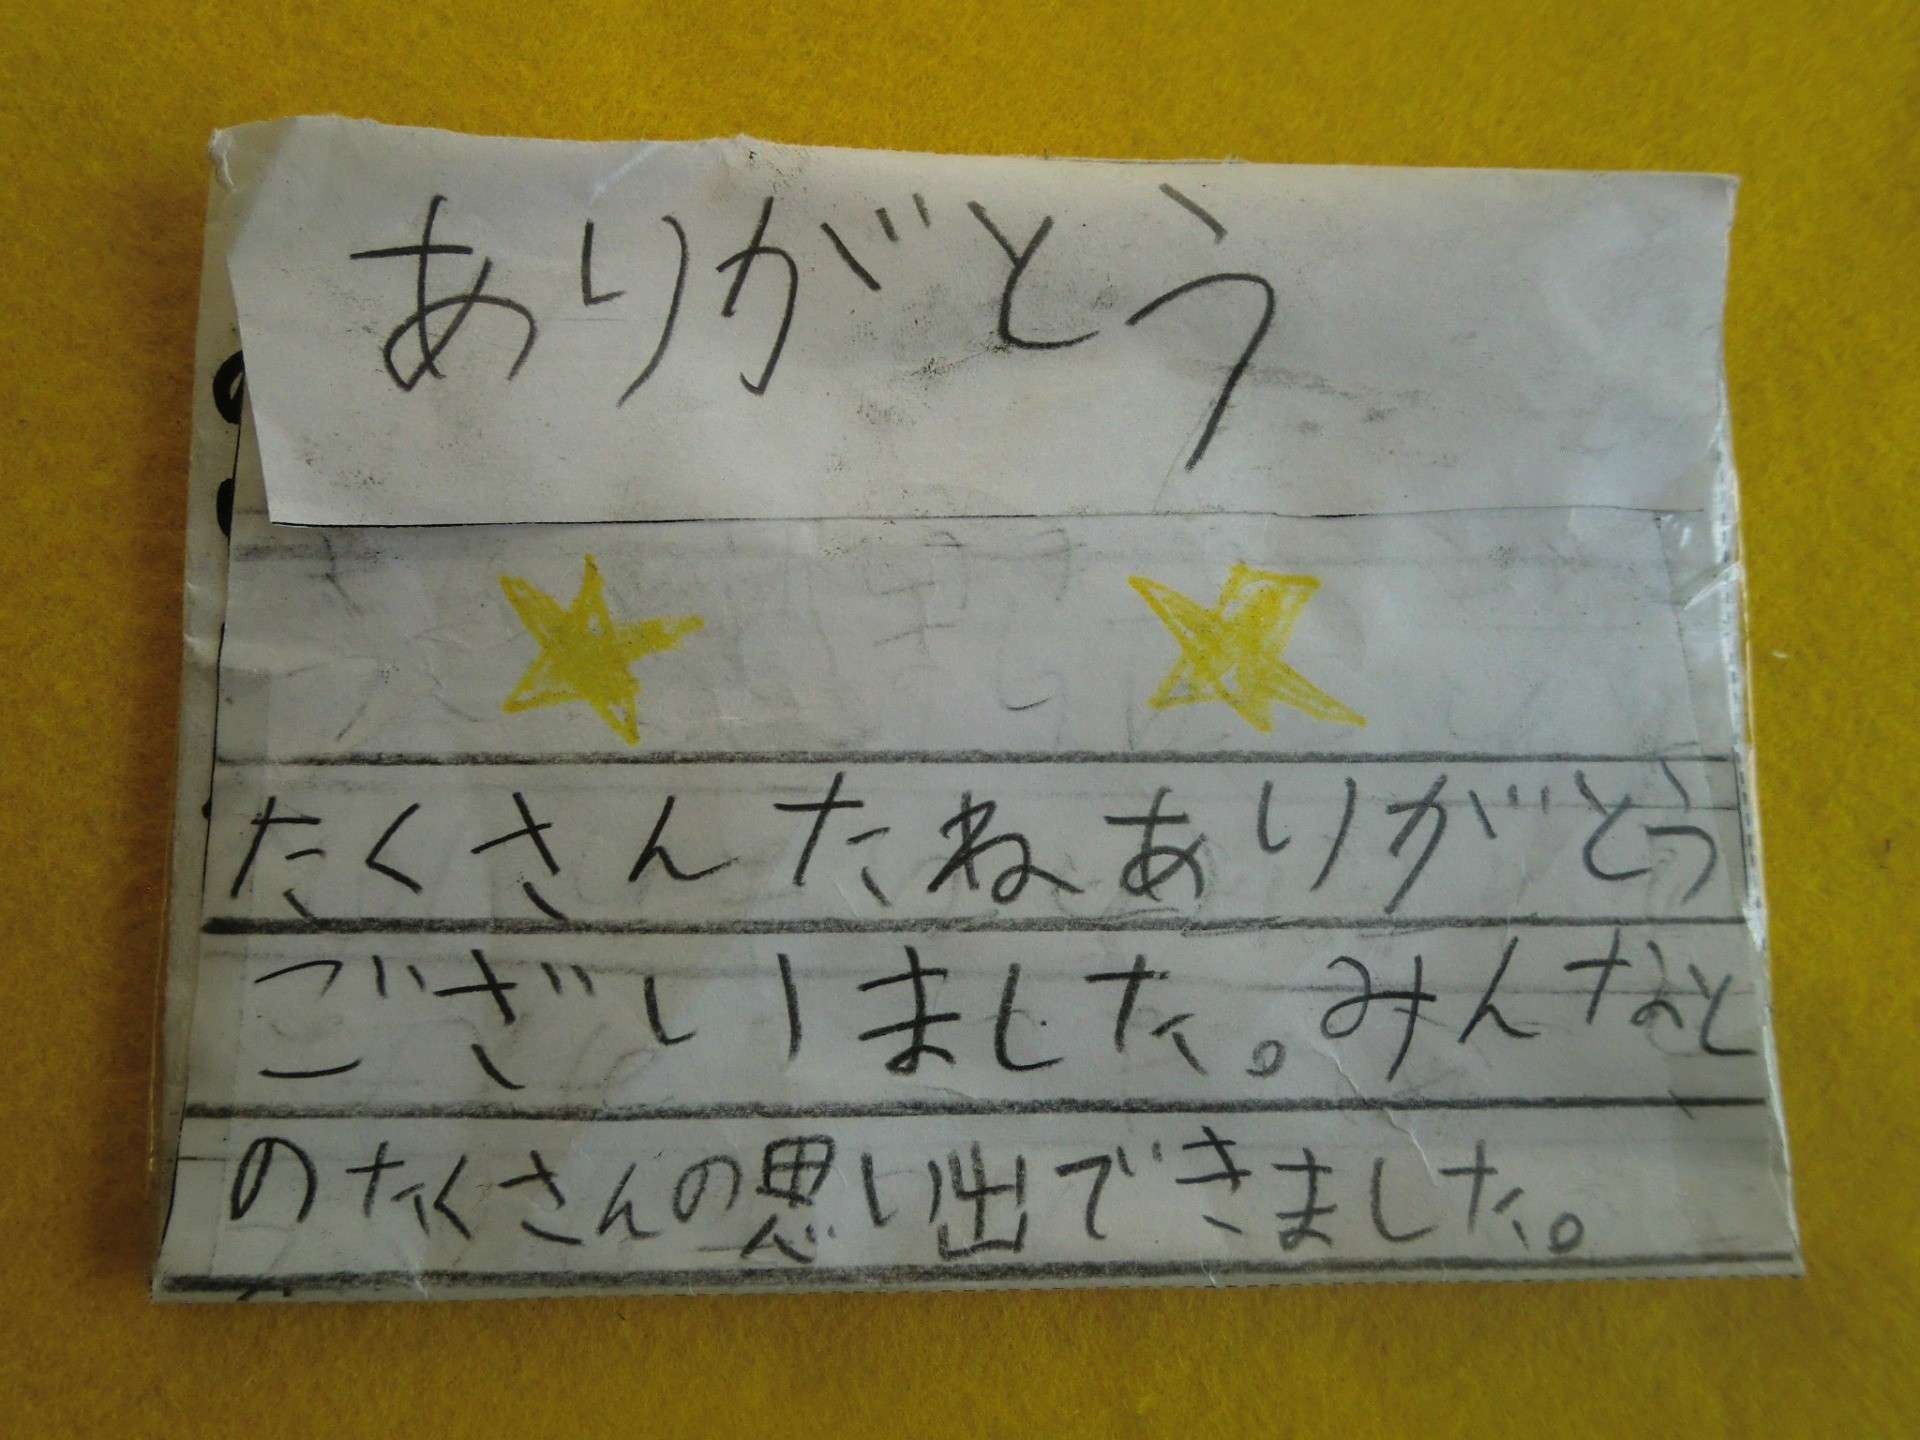 ありがとう
たくさんたねありがとう
ございました。みんなと
のたくさんの思い出できました。